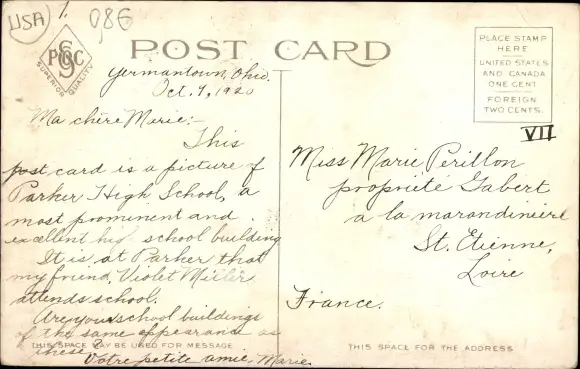 USA 1. 086
SPC
SUPERIOR QUALITY
POST CARD
PLACE STAMP
HERE
UNITED STATES
AND CANADA
ONE CENT
FOREIGN
TWO CENTS.
VII
Germantown, Ohio.
Oct. 7, 1920
Ma chère Marie:-
This
post card is a picture of
Parker High School, a
most prominent and
excellent high school building
It is at Parker that
my friend, Violet Miller
attends school.
Are your school buildings
of the same appearance as
these?
Votre petite amie, Marie.
THIS SPACE MAY BE USED FOR MESSAGE
Miss Marie Perillon
propriété Gabert
a la marandiniere
St. Etienne,
Loire
France.
THIS SPACE FOR THE ADDRESS